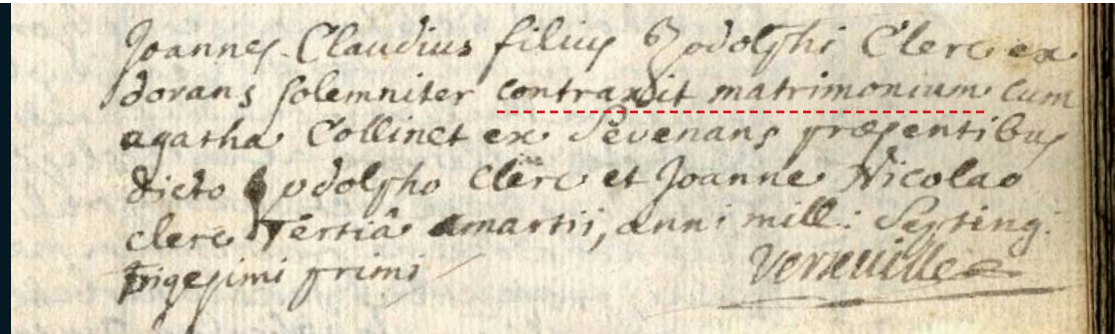 Joannes Claudius filius Rodolphi Clerc ex
dorans solemniter contraxit matrimonium cum
agatha Collinet ex Sevenans præsentibus
dicto Rodolpho Clerc et Joanne Nicolao
clerc Tertiâ martii, anni mill: Septing:
trigesimi primi